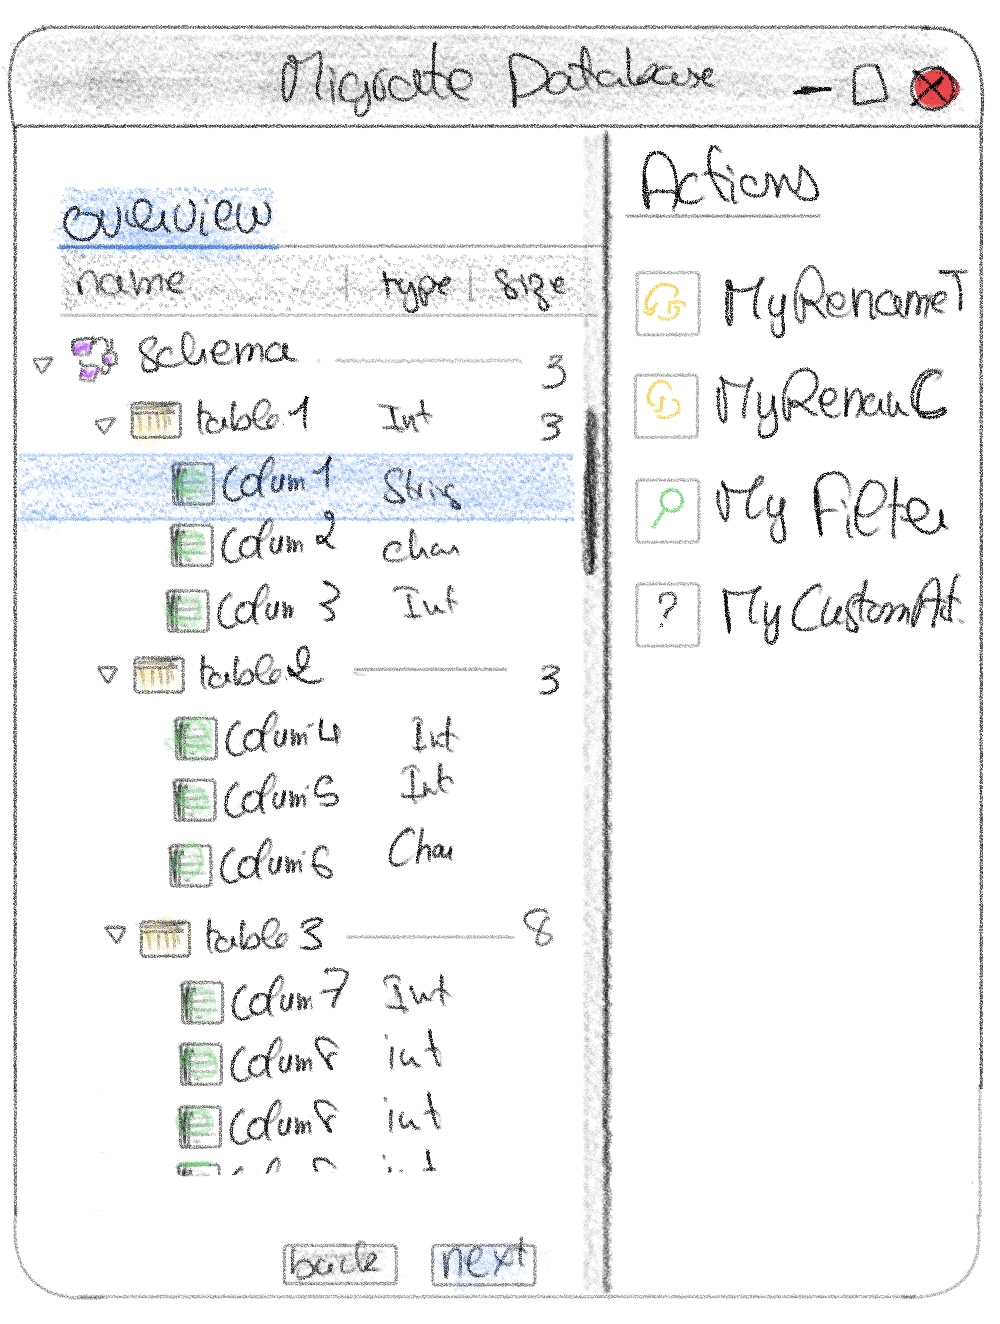 Migrate Database
overview
name | type | Size
Schema 3
table 1 Int 3
Colum 1 String
Colum 2 char
Colum 3 Int
table 2 3
Colum 4 Int
Colum 5 Int
Colum 6 Char
table 3 8
Colum 7 Int
Colum 8 int
Colum 8 int
back next
Actions
MyRenameT
MyRenamC
My Filter
? MyCustomAct.